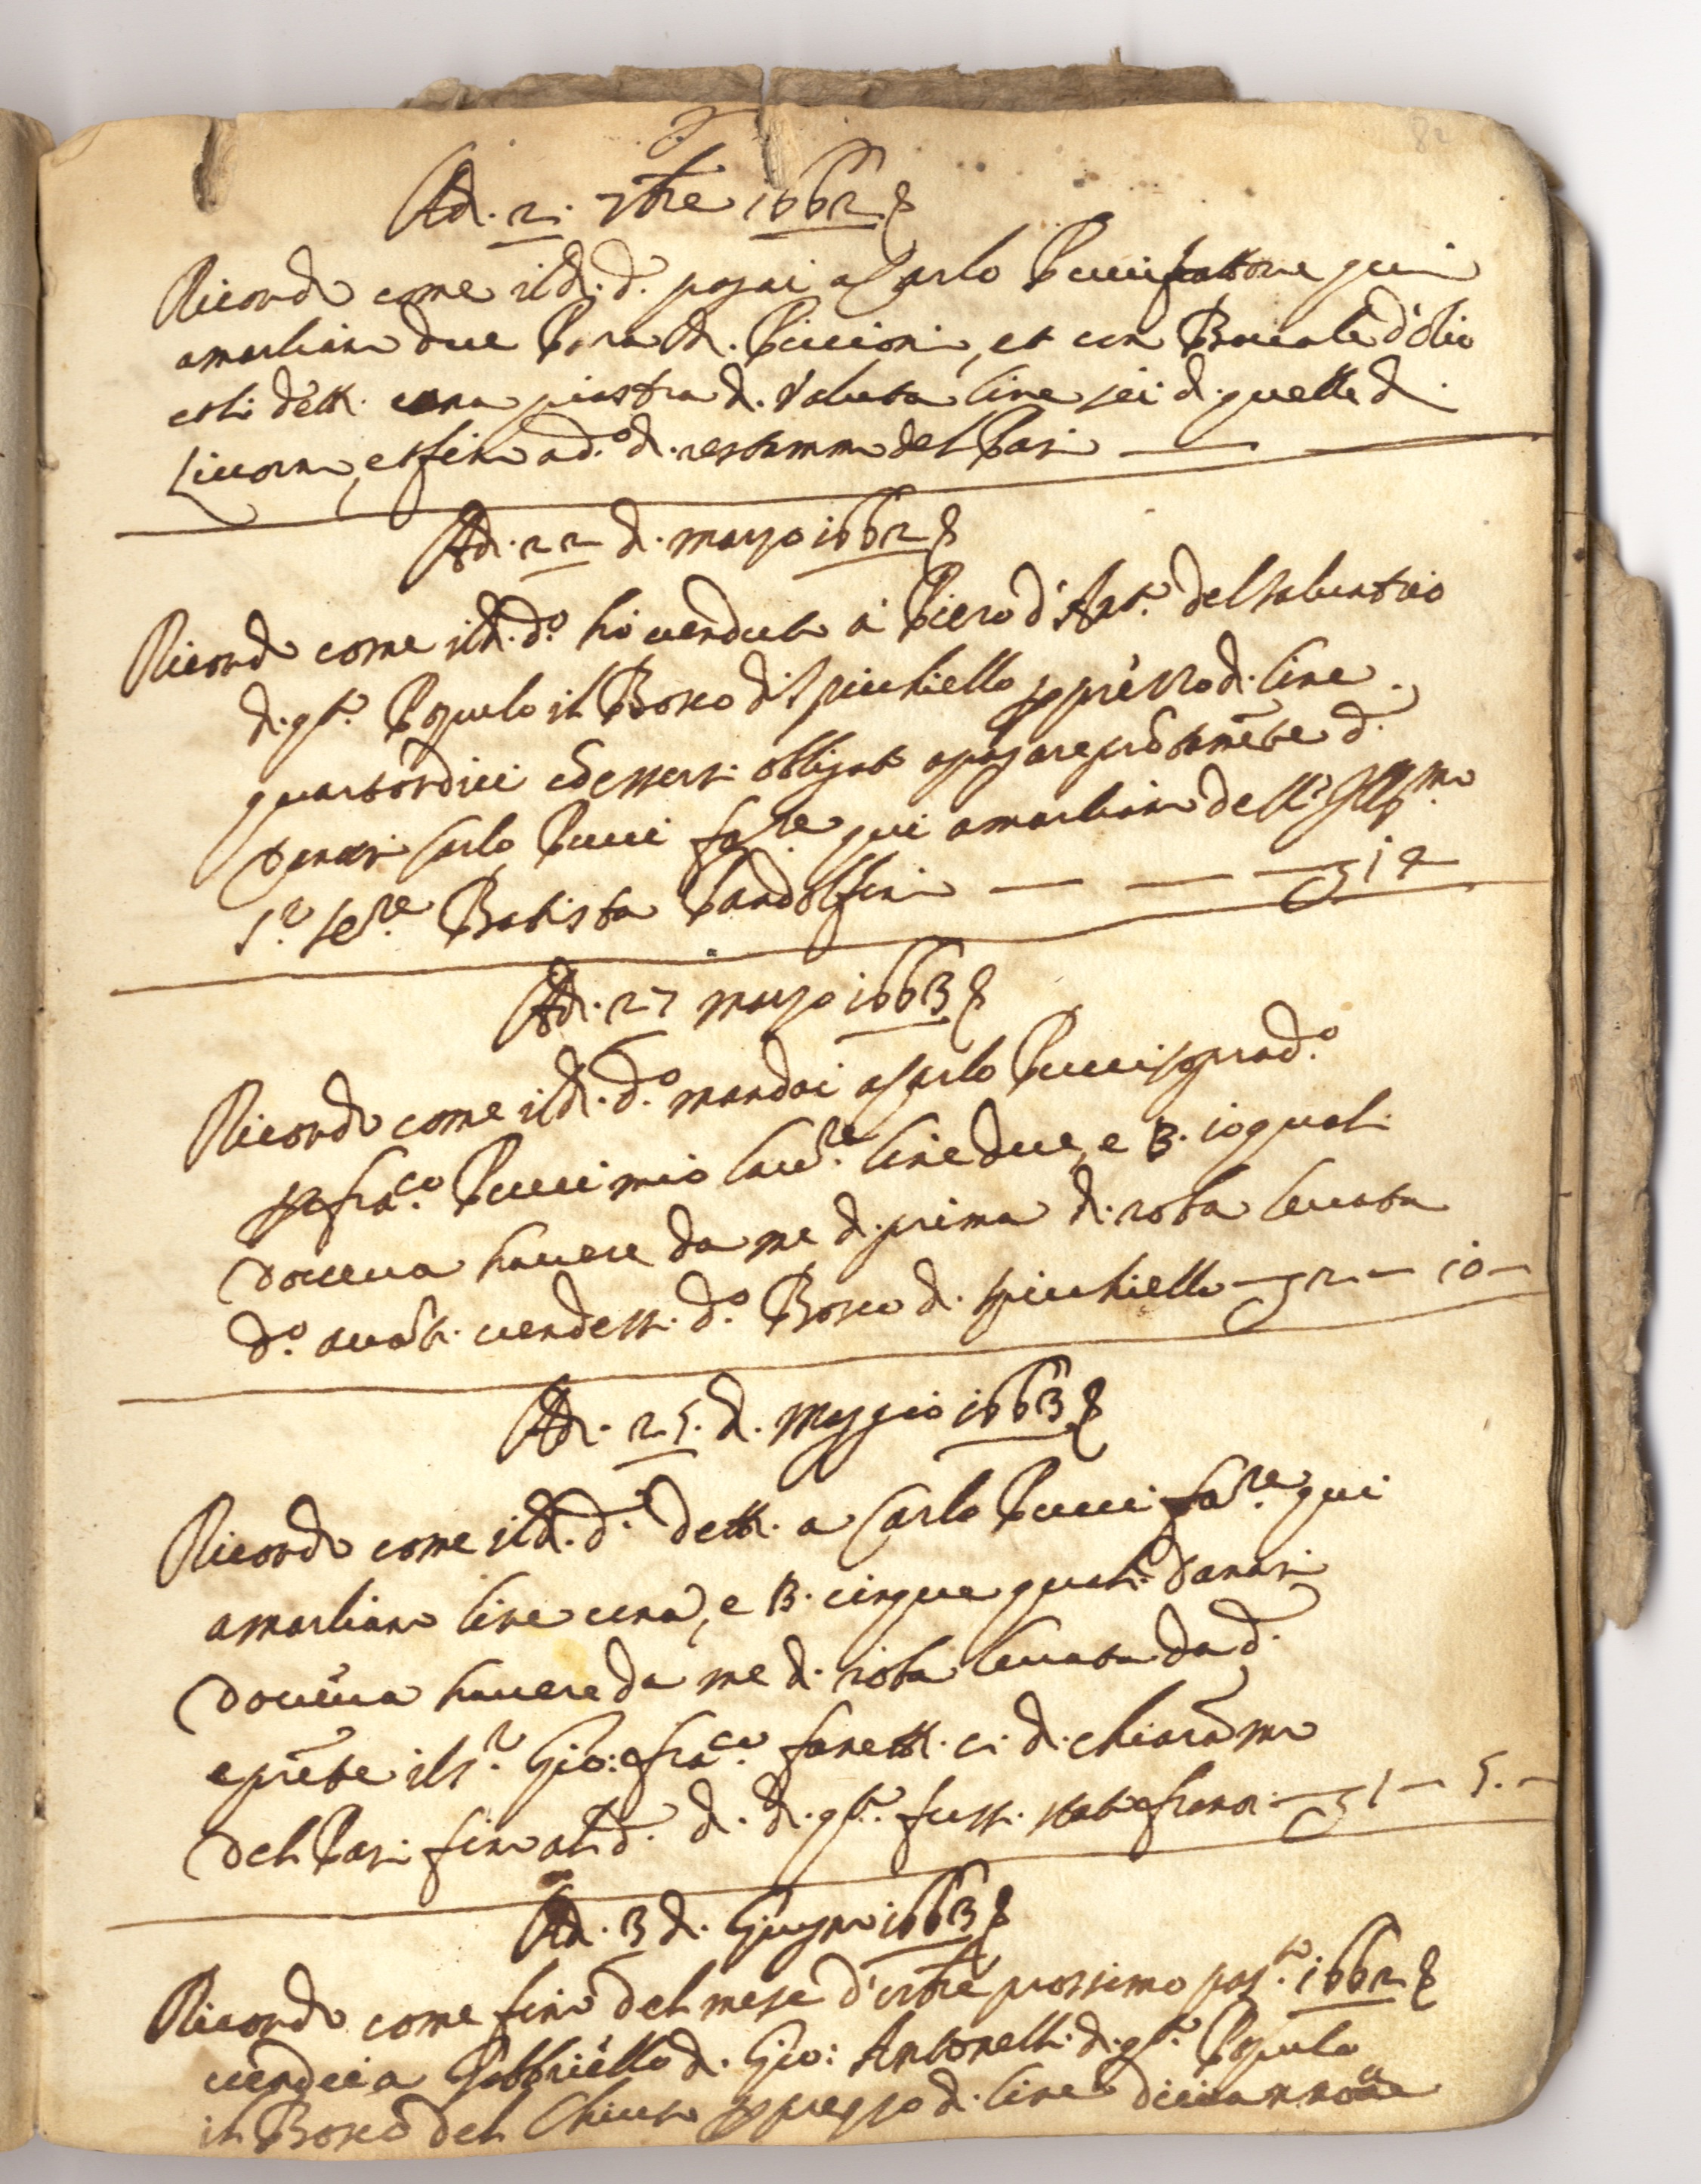 82
Adi. 2. 7bre 1662
Ricordo come il dì d.o pagai a Carlo Pucci fattore qui
a marliana due Para di Piccioni, et un Boccale d'olio
et li detti una piastra di Valuta lire sei di quelle di
Livorno, et fino ad.o dì restammo del Pari
Adi. 22 di marzo 1662
Ricordo come il dì d.o hò venduto à Piero d'Ant.o del
di q.to Popolo il Bosco di Spicchiello p prezzo di lire
quartordici ed essersi obligato a pagare prõtamẽte d.i
Danari Carlo Pucci fat.re qui a marliana dell' Ill.mo
S.r Se.re Batista Pandolfini — — — 14
Adi. 27 marzo 1663
Ricordo come il dì d.o mandai a Carlo Pucci soprad.o
p Frã.co Pucci mio lav.re lire due, e B. 10 quali
doveva havere da me di prima di roba levata
d.o avãti vendessi d.o Bosco di Spicchiello — 2 — 10 —
Adi. 25. di Maggio 1663
Ricordo come il dì d.o detti a Carlo Pucci fat.re qui
a marliana lire una, e B. cinque quali danari
doveva havere da me di roba levata da d.o
e prẽte il S.r Gio: Frã.co Fanetti ci di chiarãmo
del Pari fino al d.o dì di q.to fussi
— 1 — 5. —
Adi. 3 di Giugno 1663
Ricordo come fino del mese d' 8bre prossimo pas.to 1662
vendei a Gabbriello di Gio: Antonelli di q.to Popolo
il Bosco del Chiuso p prezzo di lire diciannove